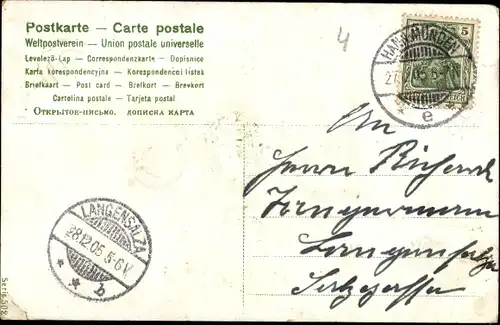 Postkarte — Carte postale
Weltpostverein — Union postale universelle
Levelező-Lap — Correspondenzkarte — Dopisnice
Karta korespondencyjna — Korespondencni listek
Briefkaart — Post card — Brefkort — Brevkort
Cartolina postale — Tarjeta postal
ОТКРЫТОЕ-ПИСЬМО. ДОПИСНА КАРТА
4
5
HANN. MÜNDEN
e
An
Herrn Richard
Langensalza
LANGENSALZA
28.12.05 5-6V.
* * b